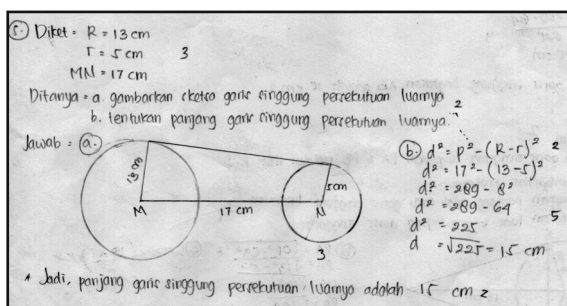 5. Diket = R = 13 cm
r = 5 cm 3
MN = 17 cm
Ditanya = a. gambarkan sketsa garis singgung persekutuan luarnya 2
b. tentukan panjang garis singgung persekutuan luarnya.
Jawab = a.
13 cm
M
17 cm
5cm
N
3
b. d² = p² - (R-r)² 2
d² = 17² - (13-5)²
d² = 289 - 8²
d² = 289 - 64
d² = 225 5
d = √225 = 15 cm
* Jadi, panjang garis singgung persekutuan luarnya adalah 15 cm 2